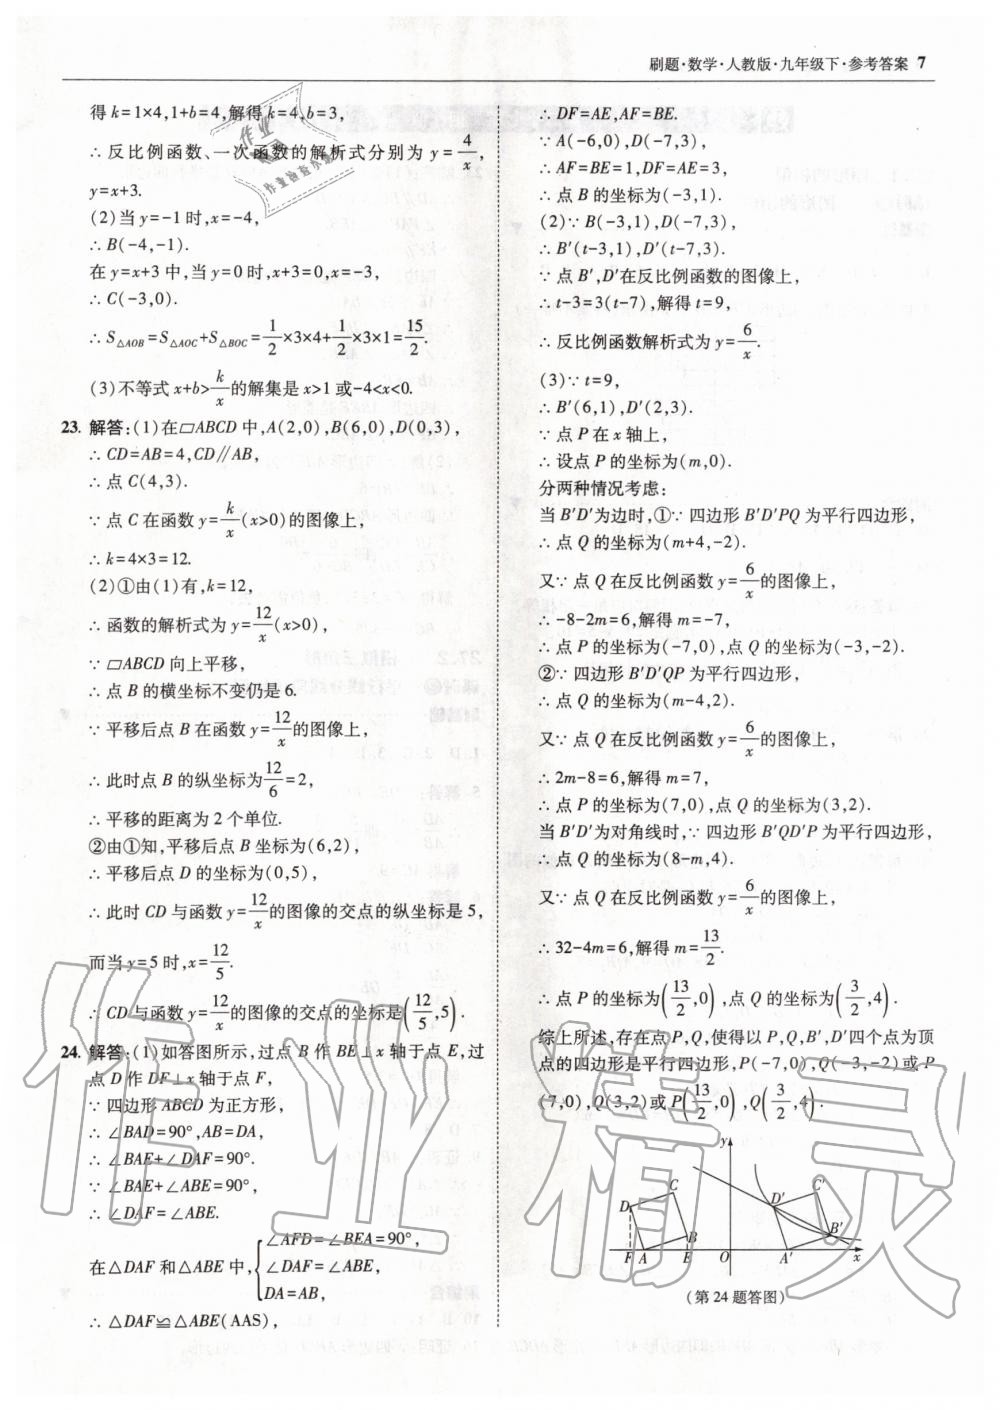 刷题·数学·人教版·九年级下·参考答案 7
得 k=1×4,1+b=4,解得 k=4,b=3,
∴ 反比例函数、一次函数的解析式分别为 y=4/x,
y=x+3.
(2)当 y=-1 时,x=-4,
∴ B(-4,-1).
在 y=x+3 中,当 y=0 时,x+3=0,x=-3,
∴ C(-3,0).
∴ S△AOB=S△AOC+S△BOC=1/2×3×4+1/2×3×1=15/2.
(3)不等式 x+b>k/x的解集是 x>1 或-4<x<0.
23. 解答:(1)在▱ABCD 中,A(2,0),B(6,0),D(0,3),
∴ CD=AB=4,CD∥AB,
∴ 点 C(4,3).
∵ 点 C 在函数 y=k/x(x>0)的图像上,
∴ k=4×3=12.
(2)①由(1)有,k=12,
∴ 函数的解析式为 y=12/x(x>0),
∵ ▱ABCD 向上平移,
∴ 点 B 的横坐标不变仍是 6.
∵ 平移后点 B 在函数 y=12/x的图像上,
∴ 此时点 B 的纵坐标为12/6=2,
∴ 平移的距离为 2 个单位.
②由①知,平移后点 B 坐标为(6,2),
∴ 平移后点 D 的坐标为(0,5),
∴ 此时 CD 与函数 y=12/x的图像的交点的纵坐标是 5,
而当 y=5 时,x=12/5.
∴ CD 与函数 y=12/x的图像的交点的坐标是(12/5,5).
24. 解答:(1)如答图所示,过点 B 作 BE⊥x 轴于点 E,过
点 D 作 DF⊥x 轴于点 F,
∵ 四边形 ABCD 为正方形,
∴ ∠BAD=90°,AB=DA,
∴ ∠BAE+∠DAF=90°.
∵ ∠BAE+∠ABE=90°,
∴ ∠DAF=∠ABE.
在△DAF 和△ABE 中,{∠AFD=∠BEA=90°,
∠DAF=∠ABE,
DA=AB,
∴ △DAF≌△ABE(AAS),
∴ DF=AE,AF=BE.
∵ A(-6,0),D(-7,3),
∴ AF=BE=1,DF=AE=3,
∴ 点 B 的坐标为(-3,1).
(2)∵ B(-3,1),D(-7,3),
∴ B′(t-3,1),D′(t-7,3).
∵ 点 B′,D′在反比例函数的图像上,
∴ t-3=3(t-7),解得 t=9,
∴ 反比例函数解析式为 y=6/x.
(3)∵ t=9,
∴ B′(6,1),D′(2,3).
∵ 点 P 在 x 轴上,
∴ 设点 P 的坐标为(m,0).
分两种情况考虑:
当 B′D′为边时,①∵ 四边形 B′D′PQ 为平行四边形,
∴ 点 Q 的坐标为(m+4,-2).
又∵ 点 Q 在反比例函数 y=6/x的图像上,
∴ -8-2m=6,解得 m=-7,
∴ 点 P 的坐标为(-7,0),点 Q 的坐标为(-3,-2).
②∵ 四边形 B′D′QP 为平行四边形,
∴ 点 Q 的坐标为(m-4,2).
又∵ 点 Q 在反比例函数 y=6/x的图像上,
∴ 2m-8=6,解得 m=7,
∴ 点 P 的坐标为(7,0),点 Q 的坐标为(3,2).
当 B′D′为对角线时,∵ 四边形 B′QD′P 为平行四边形,
∴ 点 Q 的坐标为(8-m,4).
又∵ 点 Q 在反比例函数 y=6/x的图像上,
∴ 32-4m=6,解得 m=13/2.
∴ 点 P 的坐标为(13/2,0),点 Q 的坐标为(3/2,4).
综上所述,存在点 P,Q,使得以 P,Q,B′,D′四个点为顶
点的四边形是平行四边形,P(-7,0),Q(-3,-2)或 P
(7,0),Q(3,2)或 P(13/2,0),Q(3/2,4).
y
D C B F A E O D′ C′ B′ A′ x
(第 24 题答图)
作业精灵